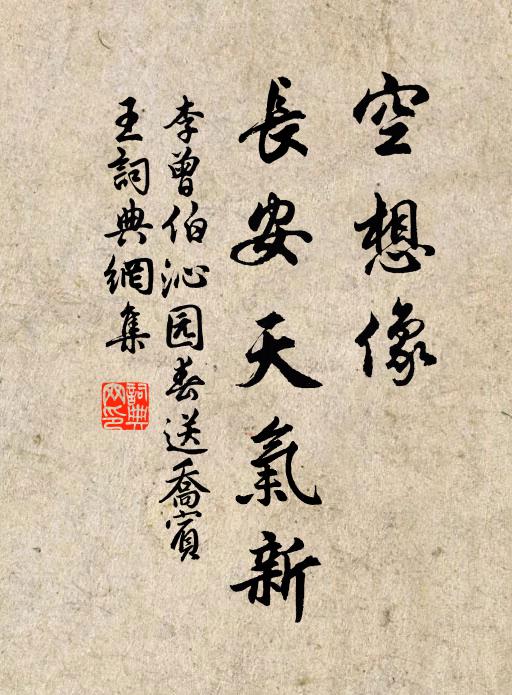 空想像
長安天氣新
李曾伯沁园春送喬賓
王詞典網集
詞典
网印